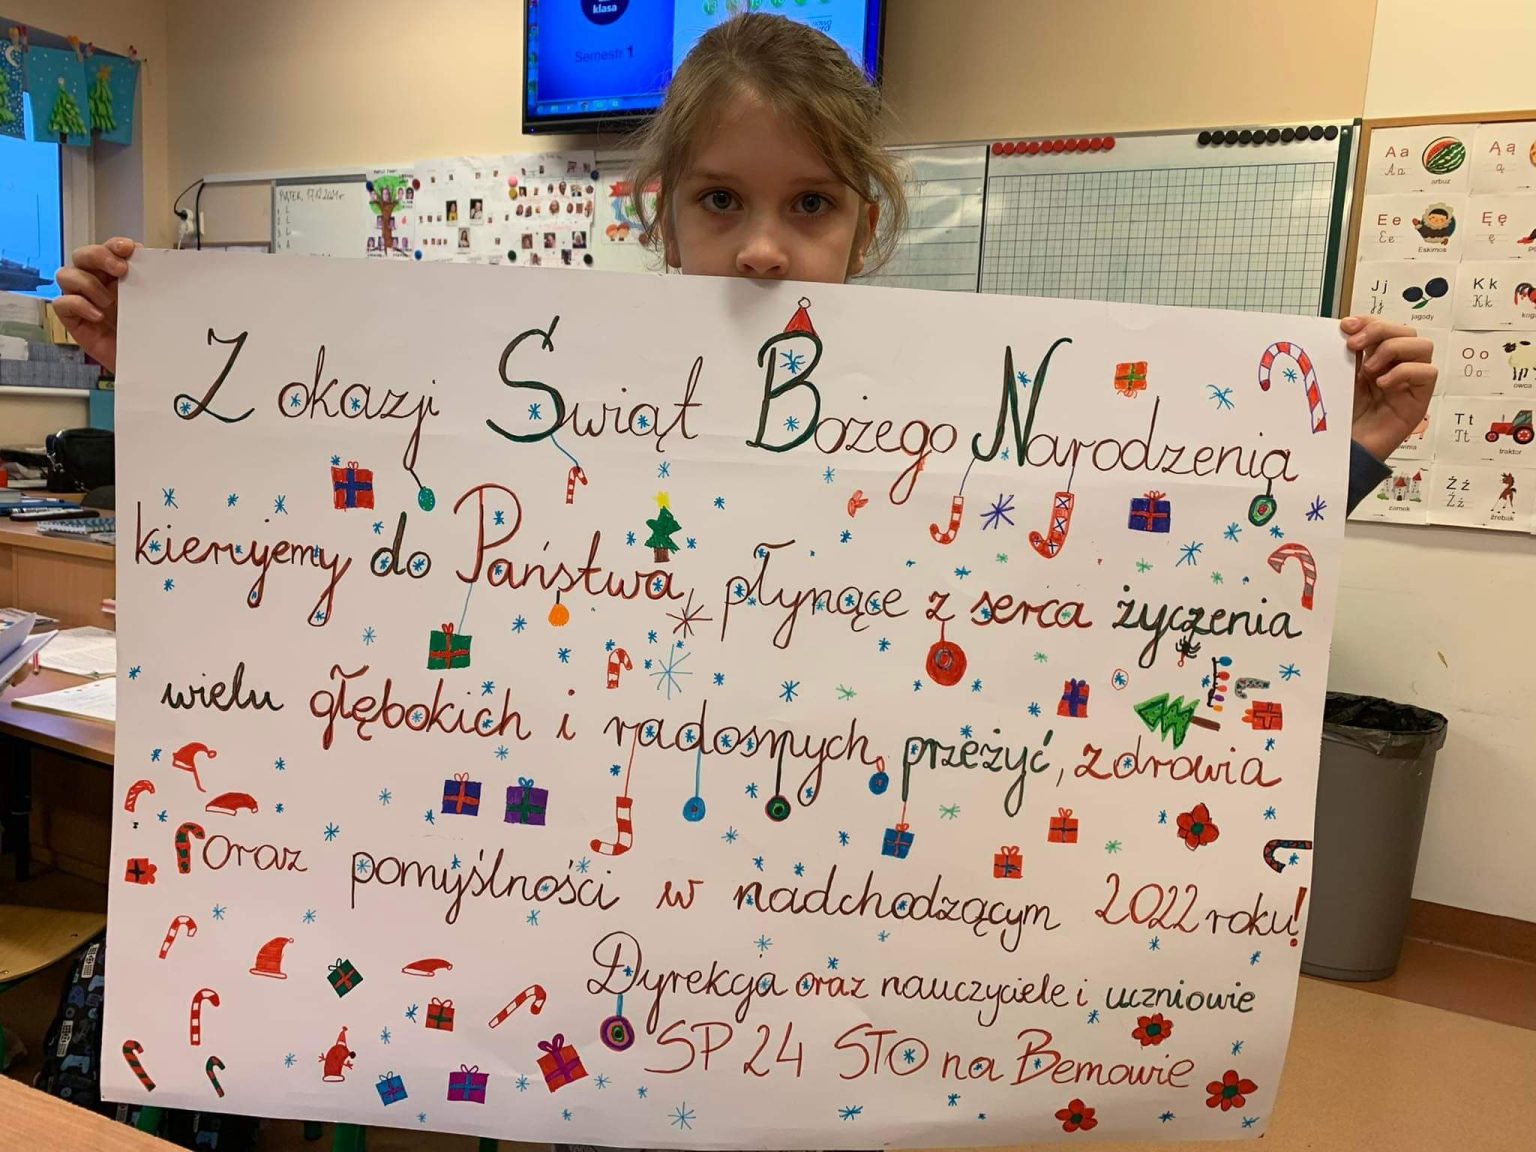 klasa
Semestr 1
PIĄTEK, 17.12.2021r.
Z okazji Świąt Bożego Narodzenia
kierujemy do Państwa, płynące z serca życzenia
wielu głębokich i radosnych przeżyć, zdrowia
oraz pomyślności w nadchodzącym 2022 roku!
Dyrekcja oraz nauczyciele i uczniowie
SP 24 STO na Bemowie
A a
A a
arbuz
Ą ą
ą
E e
E e
Eskimos
Ę ę
ę
J j
J j
jagody
K k
K k
O o
O o
owca
T t
T t
traktor
zamek
Ź ź
Ź ź
źrebak